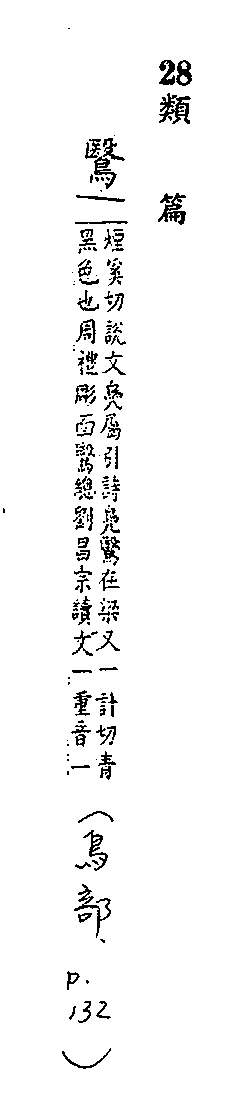 28類篇
鷖
煙奚切說文鳧屬引詩鳧鷖在梁又一計切青
黑色也周禮彫面鷖總劉昌宗讀文一重音一
(鳥部、p.132)